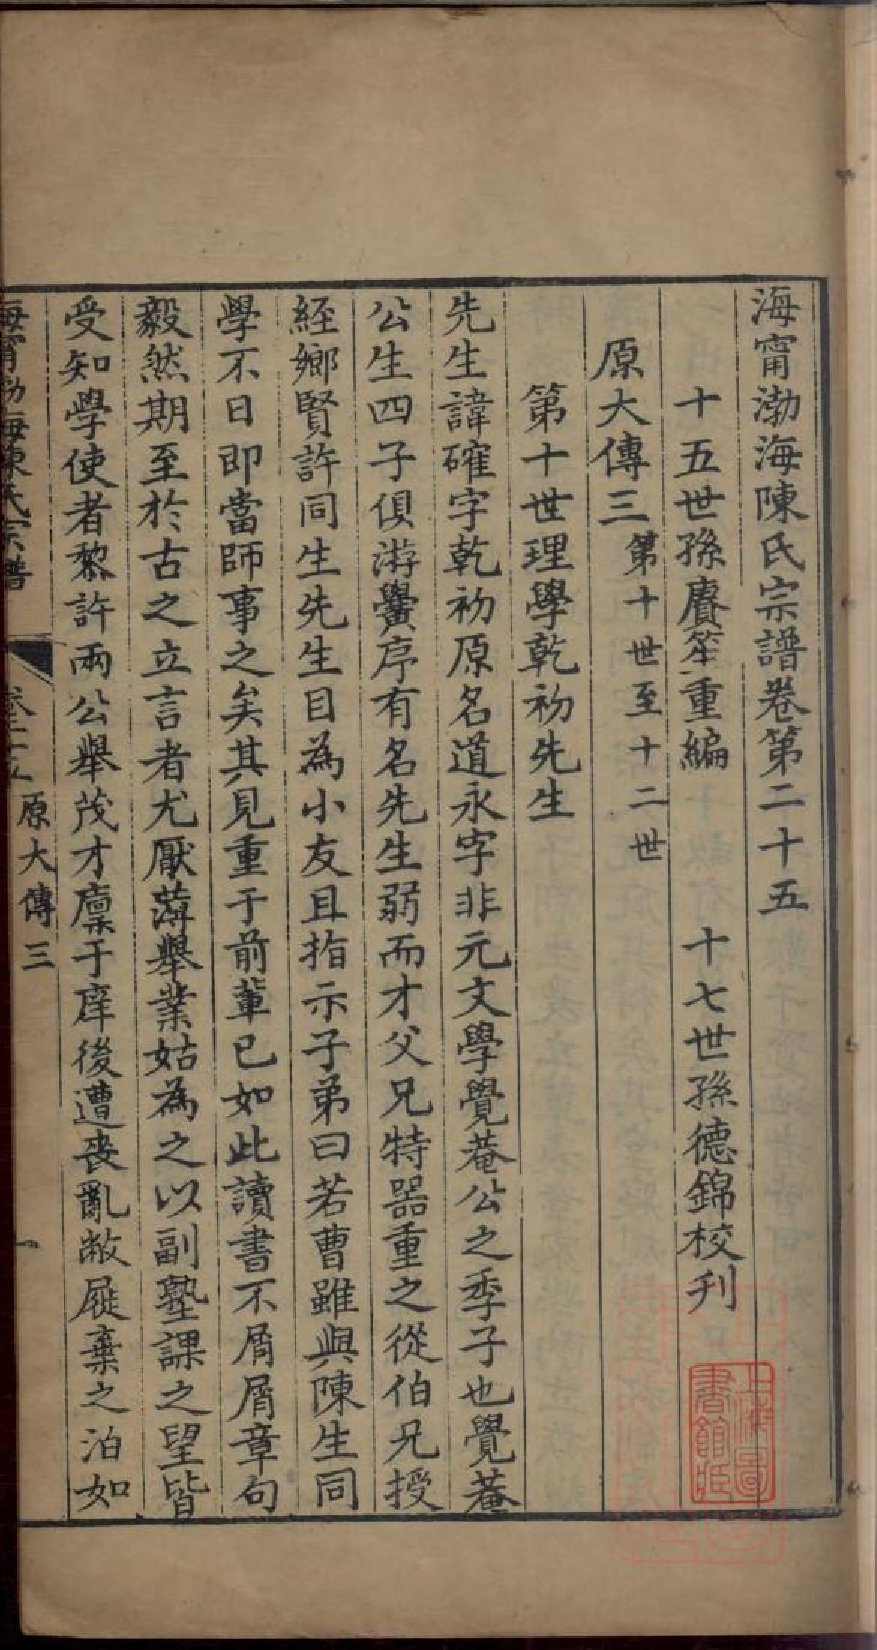 海甯渤海陳氏宗譜卷第二十五
十五世孫賡笙重編 十七世孫德錦校刋
原大傳三 第十世至十二世
第十世理學乾初先生
先生諱確字乾初原名道永字非元文學覺菴公之季子也覺菴
公生四子俱游黌序有名先生弱而才父兄特器重之從伯兄授
經鄉賢許同生先生目為小友且指示子弟曰若曹雖與陳生同
學不日即當師事之矣其見重于前輩已如此讀書不屑屑章句
毅然期至於古之立言者尤厭薄舉業姑為之以副塾課之望皆
受知學使者黎許兩公舉茂才廩于庠後遭丧亂敝屣棄之泊如
海甯渤海陳氏宗譜 卷二十五 原大傳三 一
上海圖書館藏